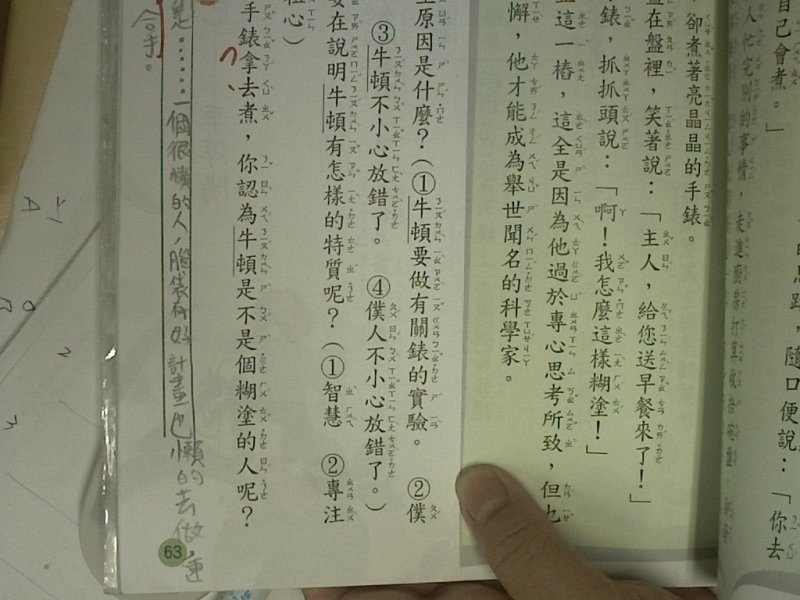 自己會煮。」
的思路，隨口便說：「你去
人忙完別的事情，走進廚房打算收拾
，卻煮著亮晶晶的手錶。
在盤裡，笑著說：「主人，給您送早餐來了！」
錶，抓抓頭說：「啊！我怎麼這樣糊塗！」
這一樁，這全是因為他過於專心思考所致，但也
懈，他才能成為舉世聞名的科學家。
原因是什麼？（①牛頓要做有關錶的實驗。 ②僕
③牛頓不小心放錯了。 ④僕人不小心放錯了。）
要在說明牛頓有怎樣的特質呢？（①智慧 ②專注
粗心）
手錶拿去煮，你認為牛頓是不是個糊塗的人呢？
是……一個很懶的人，腦袋有好計畫也懶的去做，連
合手。
63